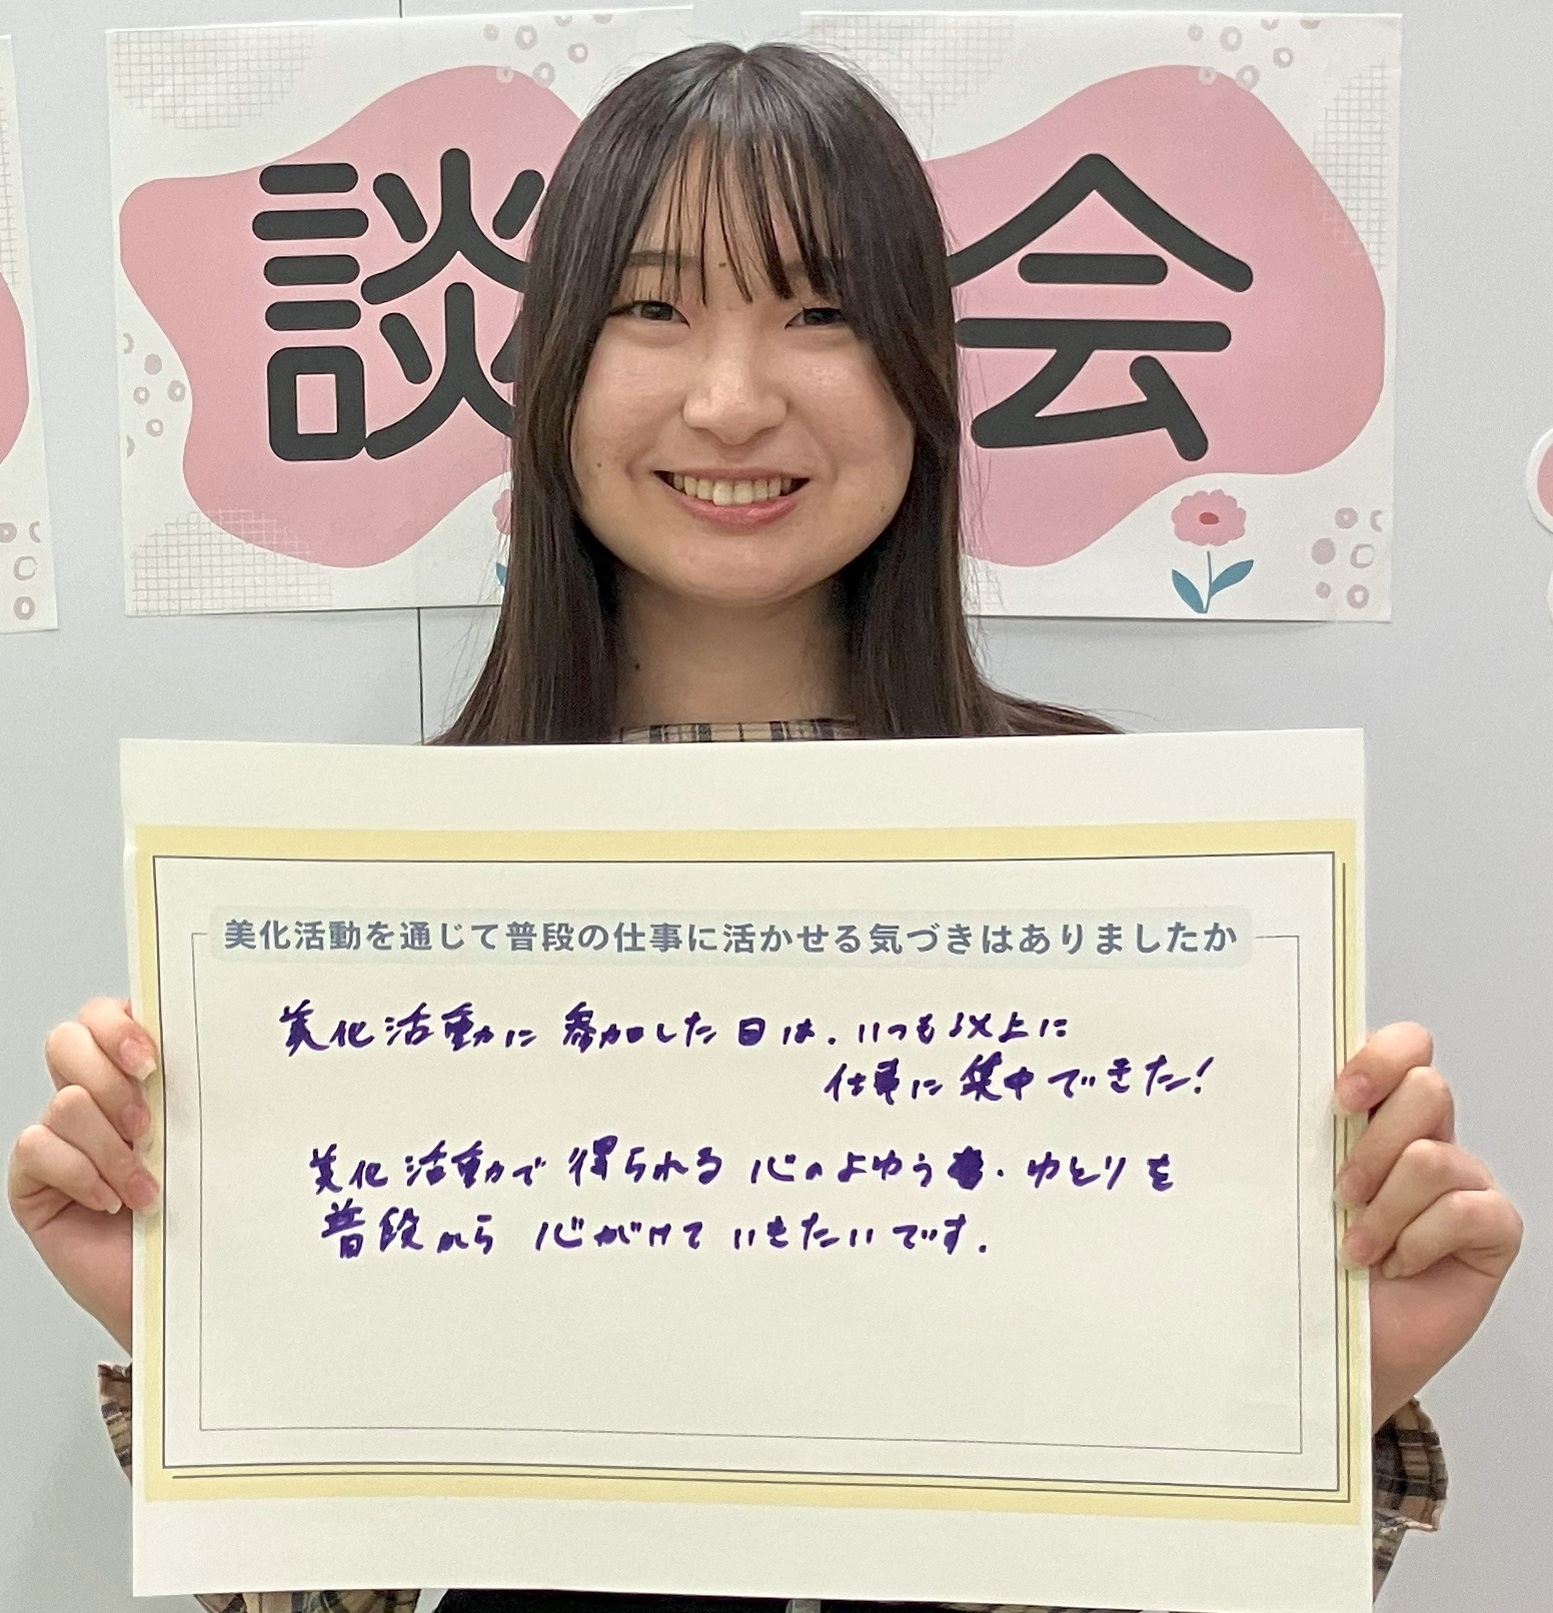 談会
美化活動を通じて普段の仕事に活かせる気づきはありましたか
美化活動に参加した日は、いつも以上に
仕事に集中できた!
美化活動で得られる心のよゆう・ゆとりを
普段から心がけていきたいです。